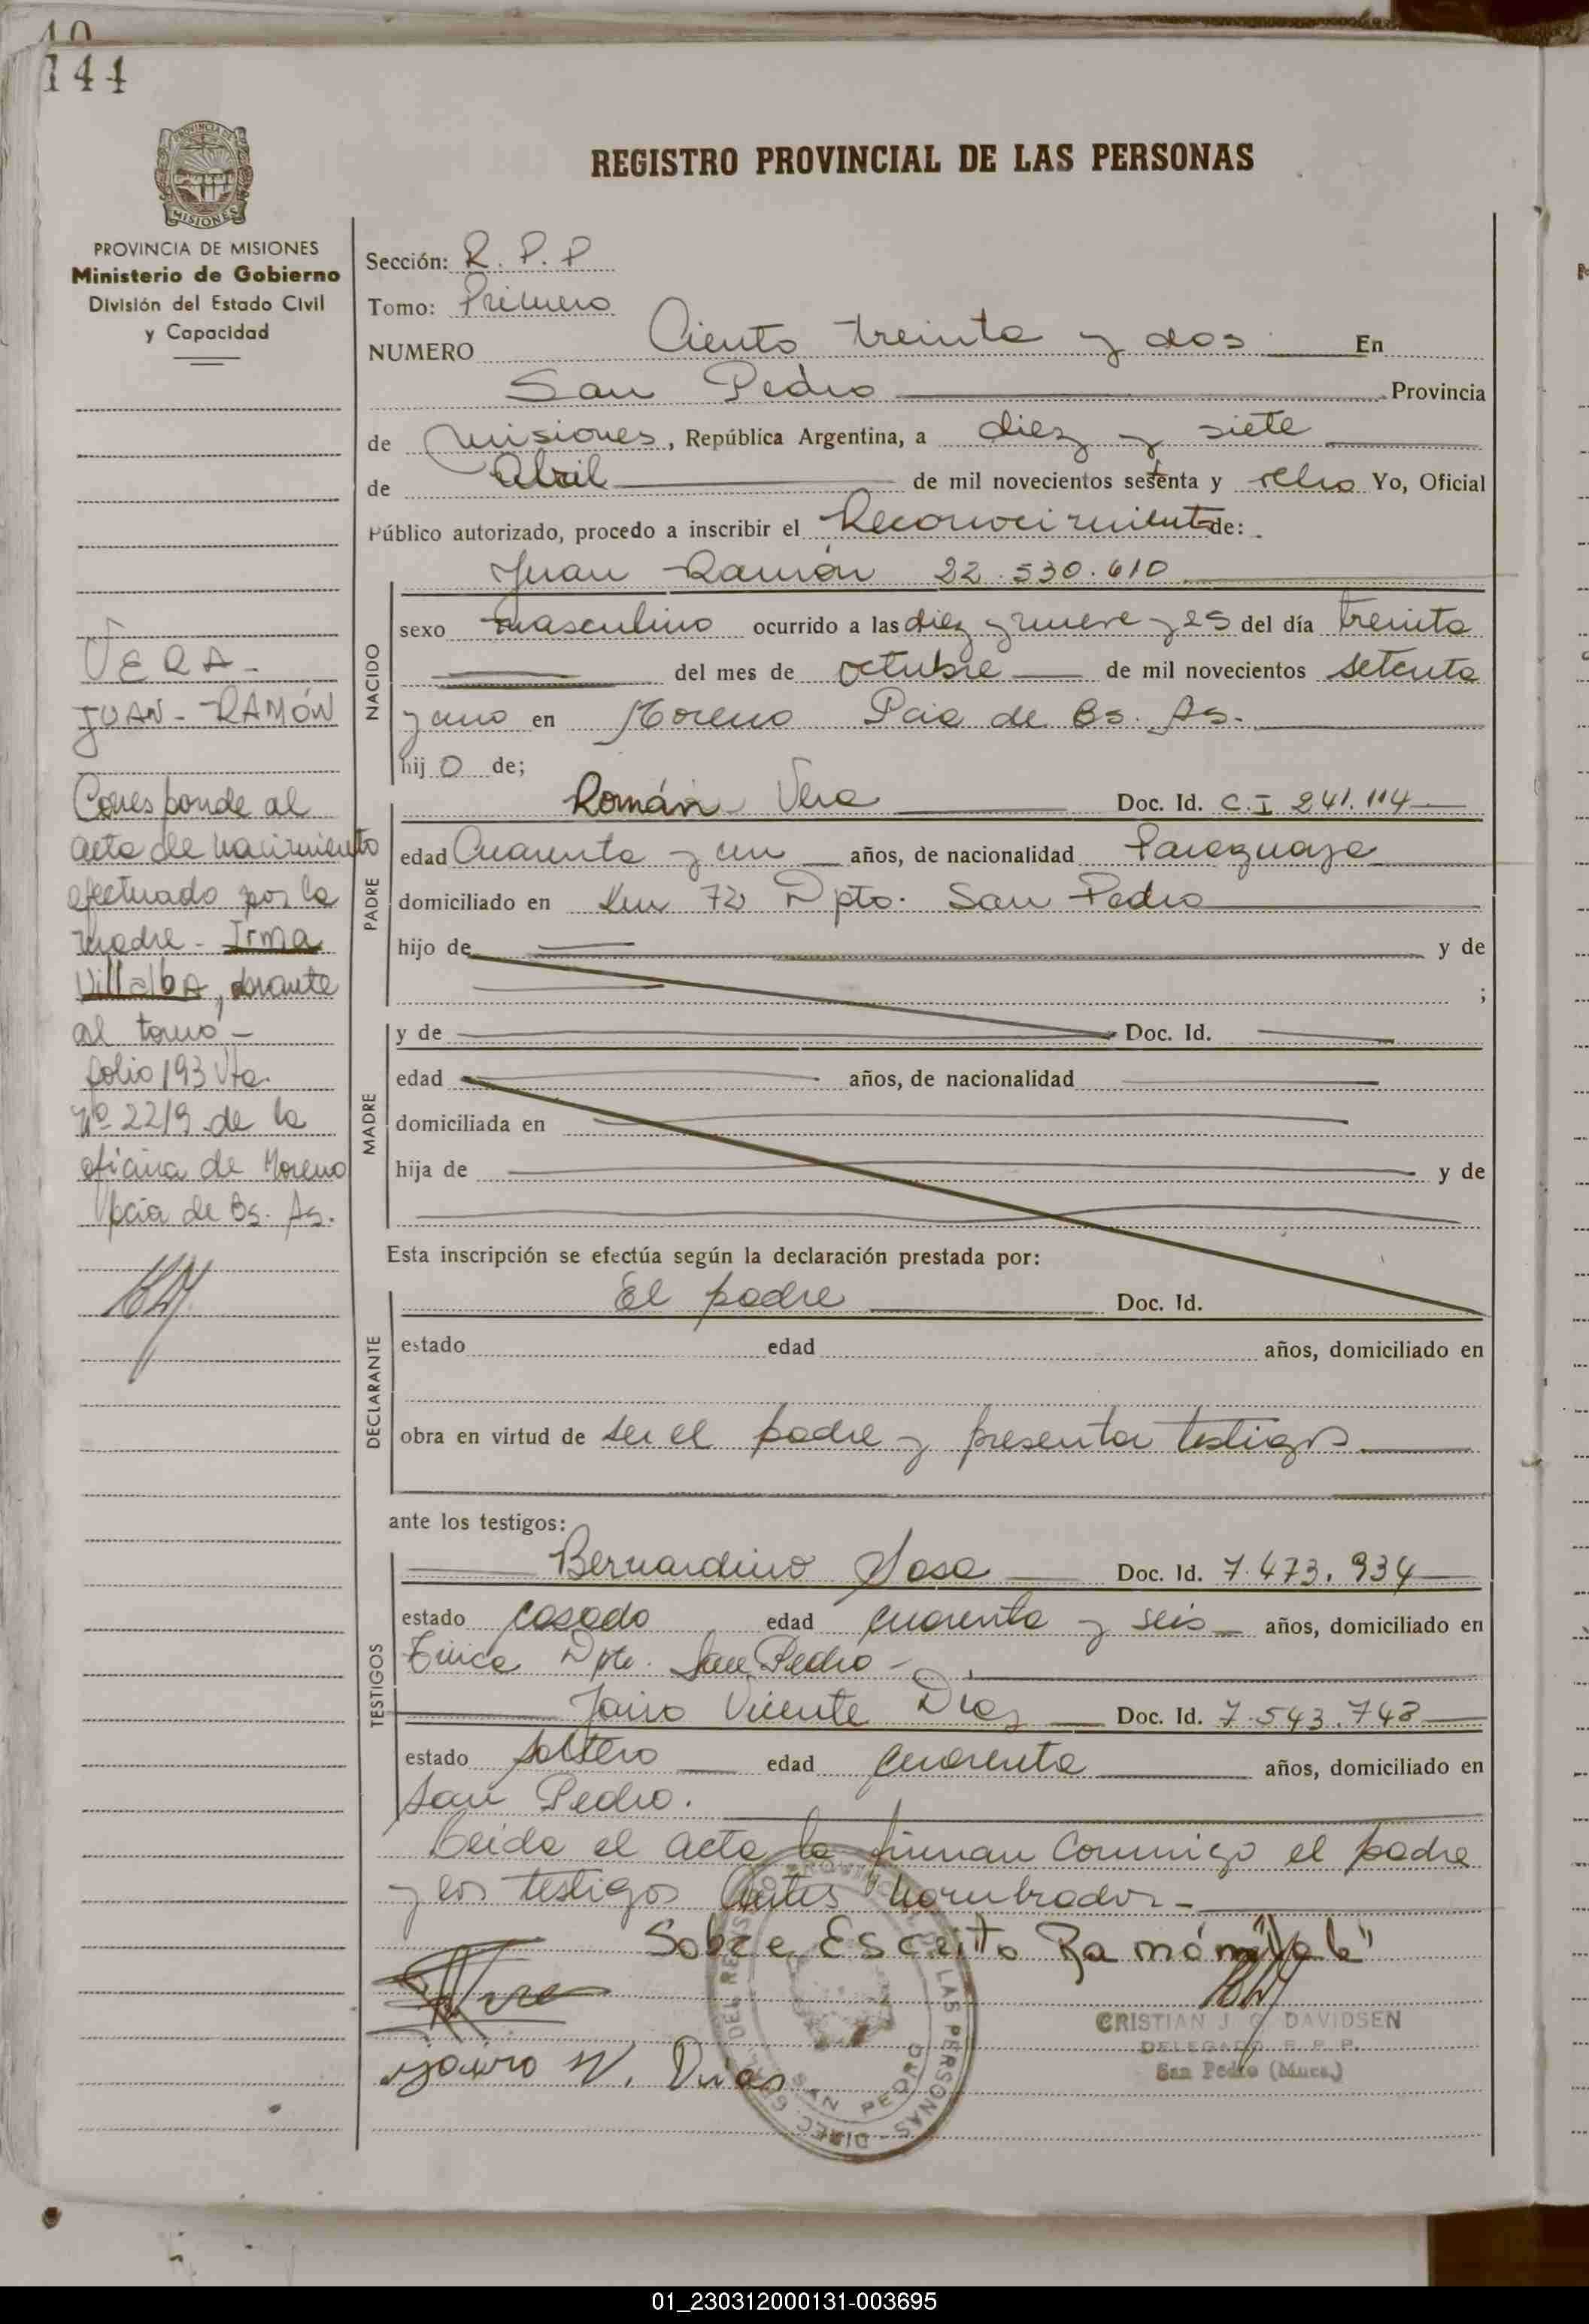 10
144
PROVINCIA DE MISIONES
Ministerio de Gobierno
División del Estado Civil
y Capacidad
VERA -
JUAN - RAMÓN
Corresponde al
acta de nacimiento
efectuado por la
madre - Irma
Villalba, obrante
al tomo -
folio 193 Vta.
Nº 2219 de la
oficina de Moreno
pcia de Bs. As.
REGISTRO PROVINCIAL DE LAS PERSONAS
Sección: R. P. P
Tomo: Primero
NUMERO Ciento treinta y dos En
San Pedro Provincia
de Misiones, República Argentina, a diez y siete
de Abril de mil novecientos setenta y ocho Yo, Oficial
Público autorizado, procedo a inscribir el Reconocimiento de:
Juan Ramón 22.530.610
NACIDO
sexo masculino ocurrido a las diez y nueve y 25 del día treinta
del mes de octubre de mil novecientos setenta
y uno en Moreno Pcia de Bs. As.
hij o de;
PADRE
Román Vera Doc. Id. C.I 241.114
edad Cuarenta y un años, de nacionalidad Paraguaya
domiciliado en Km 72 Dpto. San Pedro
hijo de y de
;
MADRE
y de Doc. Id.
edad años, de nacionalidad
domiciliada en
hija de y de
Esta inscripción se efectúa según la declaración prestada por:
DECLARANTE
El padre Doc. Id.
estado edad años, domiciliado en
obra en virtud de ser el padre y presentar testigos
ante los testigos:
TESTIGOS
Bernardino Sosa Doc. Id. 7.473.934
estado casado edad cuarenta y seis años, domiciliado en
Dpto. San Pedro -
Jairo Vicente Días Doc. Id. 7.543.748
estado soltero edad cuarenta años, domiciliado en
San Pedro.
Leida el acta la firman conmigo el padre
y los testigos antes nombrados -
Sobre Escrito Ramón "Vale"
Jairo V. Dias
CRISTIAN J. C. DAVIDSEN
DELEGADO R. P. P.
San Pedro (Mnes.)
LAS PERSONAS - DIREC
SAN PEDRO
01_230312000131-003695